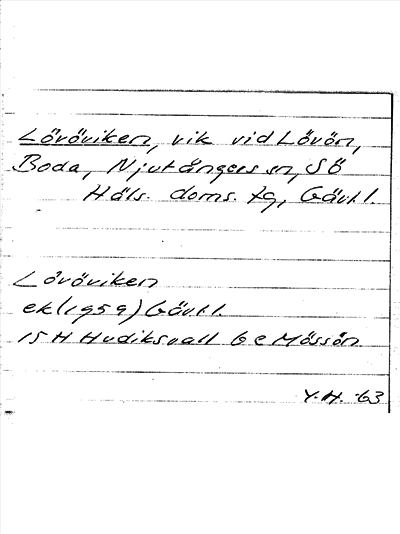 Lövöviken, vik vid Lövön,
Boda, Njutångers sn, SÖ
Häls. doms. tg, Gävl.l.
Lövöviken
ek (1959) Gävl.l.
15H Hudiksvall 6e Mössön
Y.H. 63